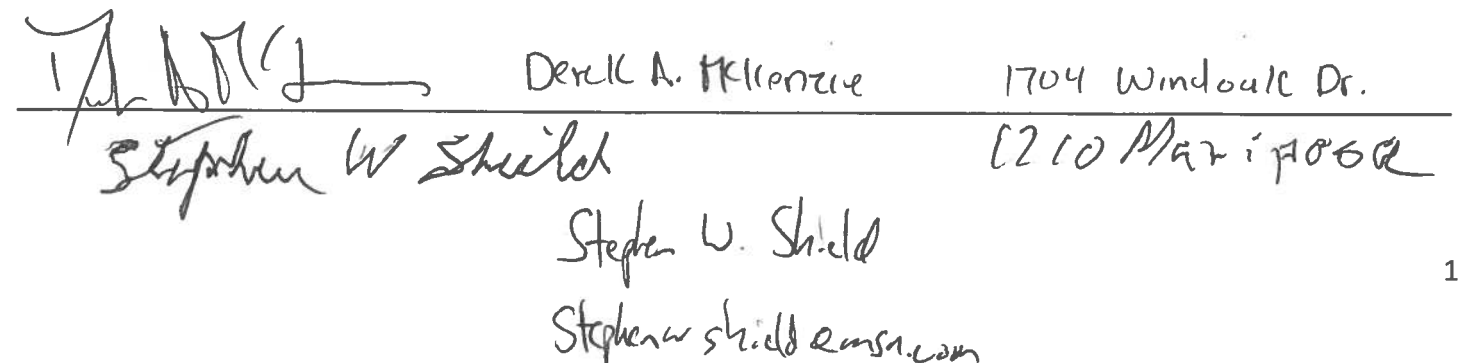 Derek A. McKenzie 1704 Windoak Dr.
Stephen W Shield 1210 Mariposa
Stephen W. Shield
1
Stephenwshield@msn.com